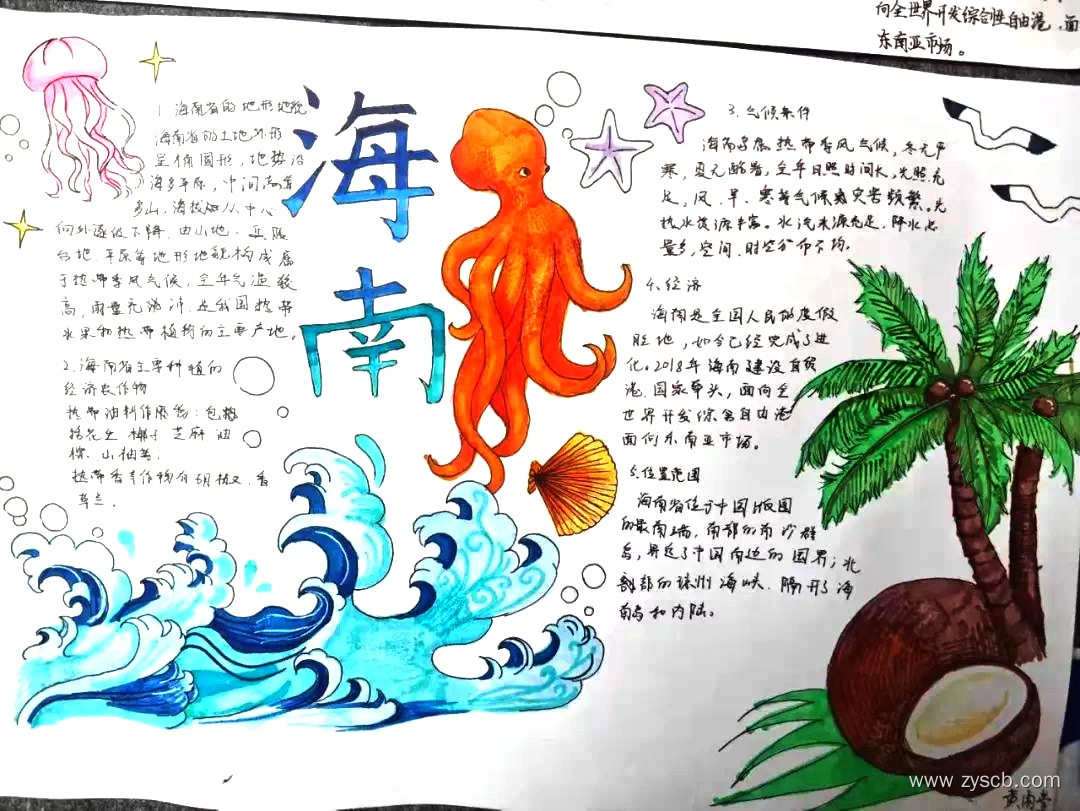 向全世界开发综合性自由港,面
东南亚市场。
海南
1.海南省的地形地貌
海南省的土地外形
呈椭圆形,地势沿
海多平原,中间高耸
多山,海拔从中心
向外逐级下降,由山地、丘陵
台地、平原等地形地貌构成属
于热带季风气候,全年气温较
高,雨量充沛,是我国热带
水果和热带植物的主要产地。
2.海南省主要种植的
经济农作物
热带油料作物:包
括花生 椰子 芝麻 油
棕、山柚等.
热带香料作物有胡椒、香
草兰.
3.气候条件
海南岛属热带季风气候,冬无严
寒,夏无酷暑,全年日照时间长,光照充
足,风、旱、寒等气候灾害频繁。光
热水资源丰富。水汽来源充足,降水总
量多,空间、时空分布不均。
4.经济
海南是全国人民的度假
胜地,如今已经完成了进
化。2018年海南建设自贸
港,国家牵头,面向全
世界开发综合自由港
面向东南亚市场。
5.位置范围
海南省位于中国版图
的最南端,南部的南沙群
岛,界定了中国南边的国界;北
部的琼州海峡,隔开了海
南岛和内陆。
www.zyscb.com